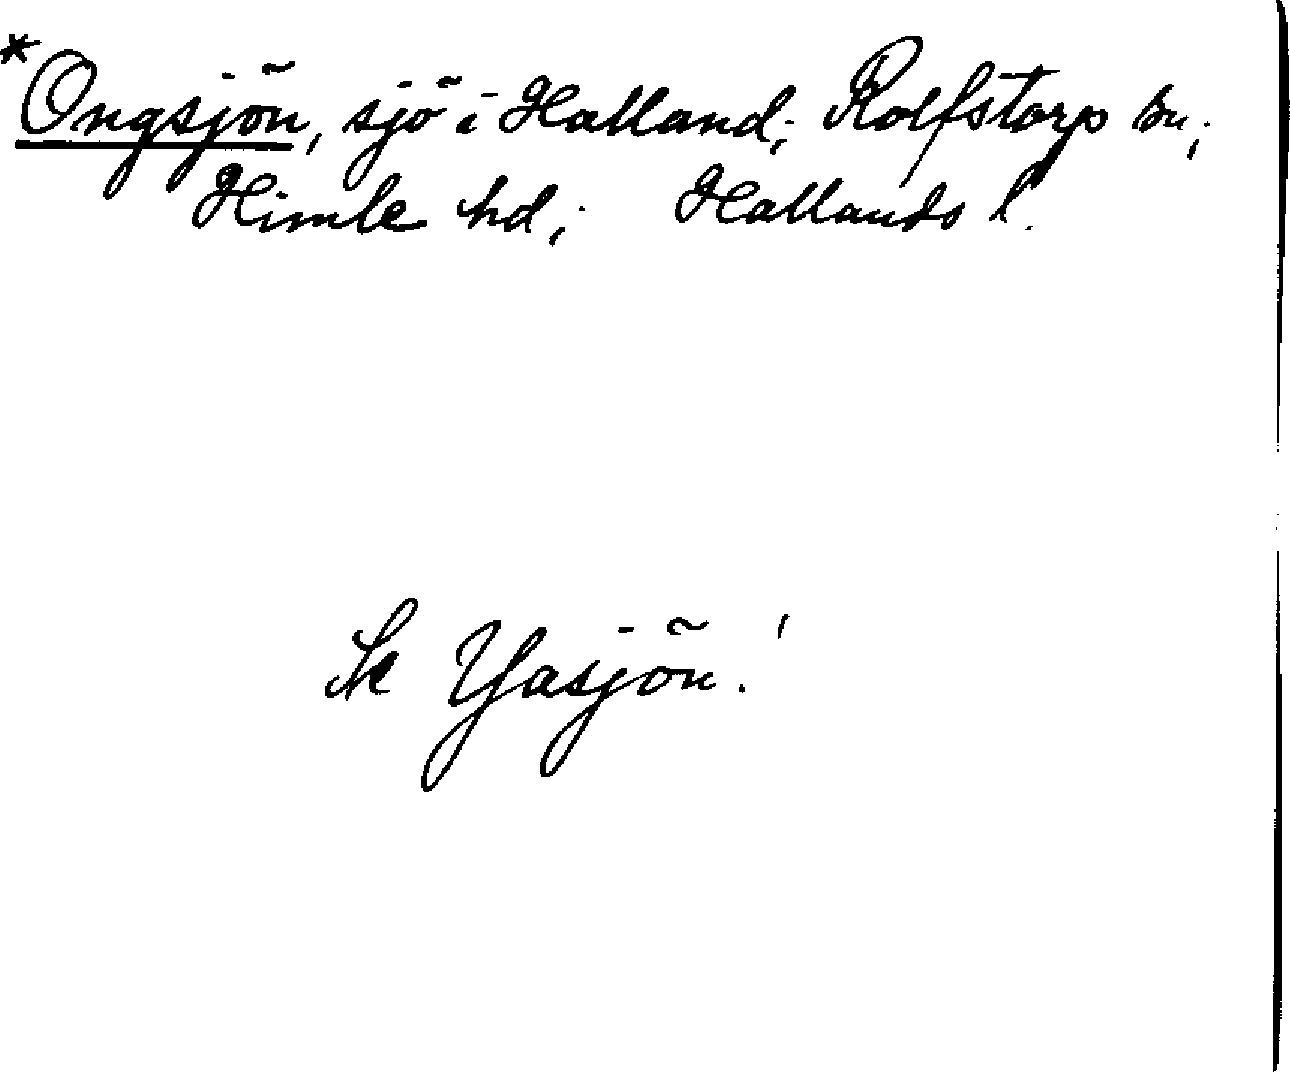 *Ongsjön, sjö i Halland; Rolfstorp sn;
Himle hd; Hallands l.
Se Yasjön!